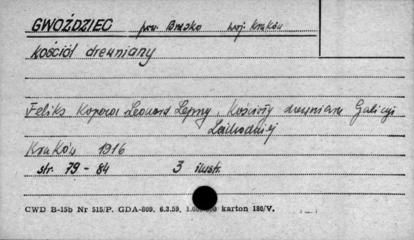 GWOŹDZIEC pow. Brzesko woj. Kraków
Kościół drewniany
Feliks Kopera Leonard Lepszy, Kościoły drewniane Galicji
Zachodniej
Kraków 1916
str. 79-84 3 ilustr.
CWD B-15b Nr 515/P. GDA-809. 6.3.59. karton 180/V.